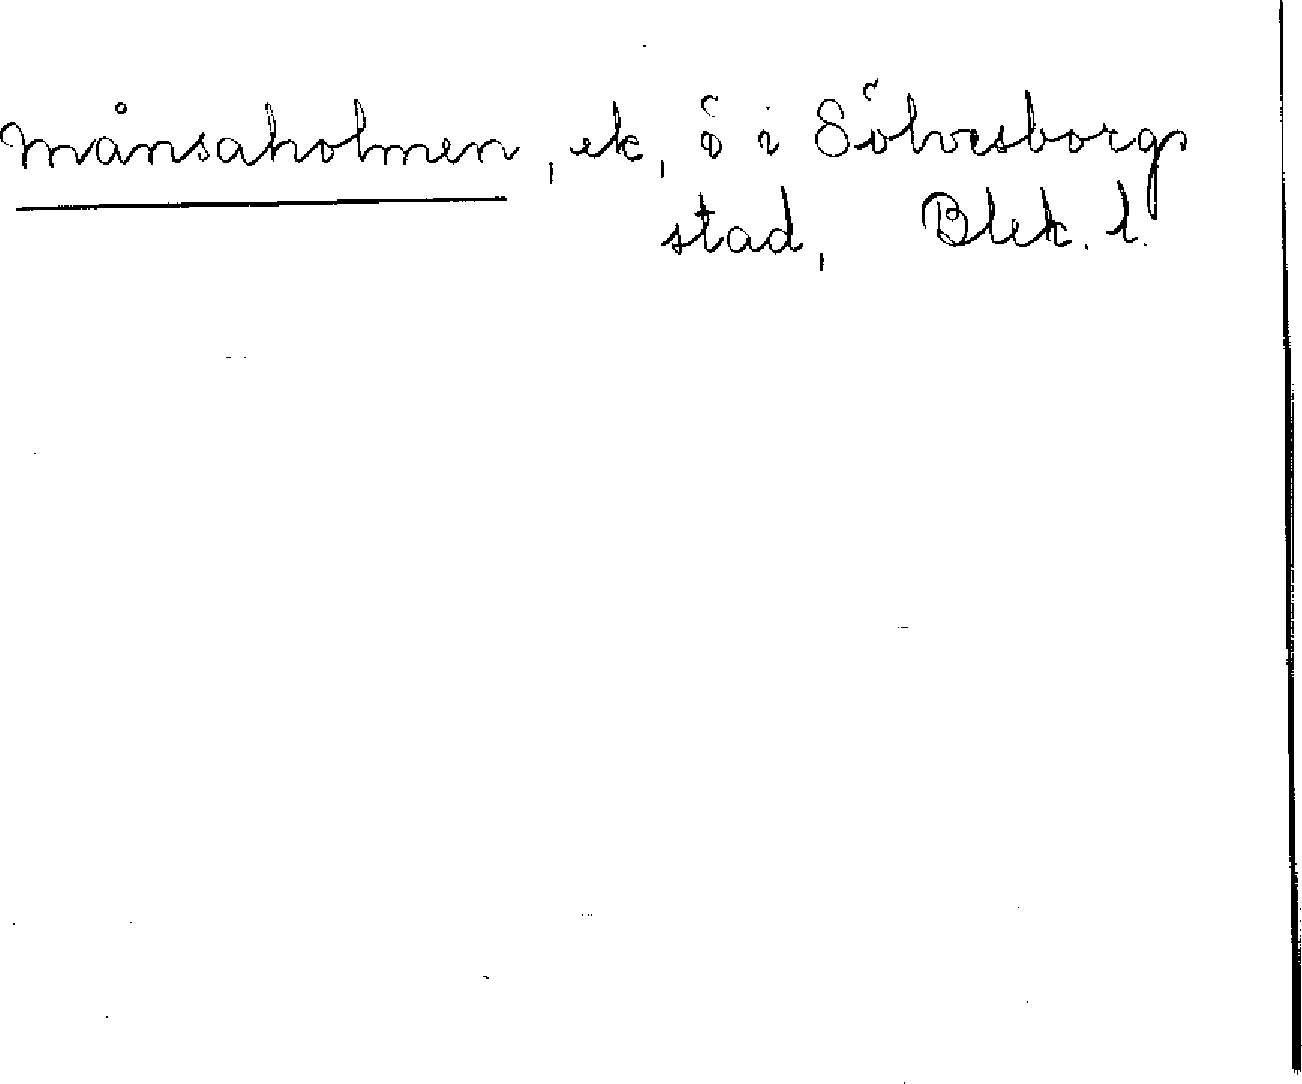 Månsaholmen, ek, ö i Sölvesborgs
stad, Blek. l.